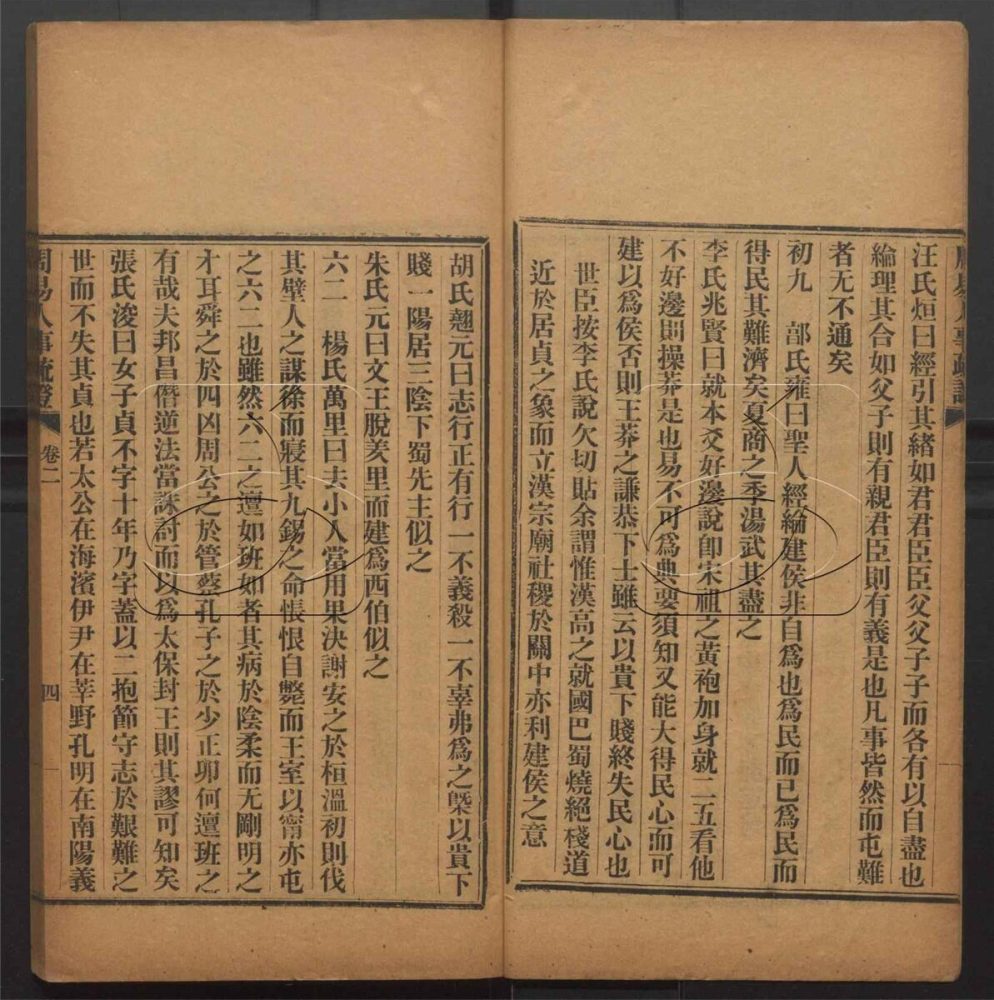 周易人事疏證
汪氏烜曰經引其緒如君君臣臣父父子子而各有以自盡也
綸理其合如父子則有親君臣則有義是也凡事皆然而屯難
者无不通矣
初九　郚氏雍曰聖人經綸建侯非自爲也爲民而已爲民而
得民其難濟矣夏商之季湯武其盡之
李氏兆賢曰就本爻好邊說卽宋祖之黃袍加身就二五看他
不好邊則操莽是也易不可爲典要須知又能大得民心而可
建以爲侯否則王莽之謙恭下士雖云以貴下賤終失民心也
世臣按李氏說欠切貼余謂惟漢高之就國巴蜀燒絕棧道
近於居貞之象而立漢宗廟社稷於關中亦利建侯之意
胡氏翹元曰志行正有行一不義殺一不辜弗爲之槩以貴下
賤一陽居三陰下蜀先主似之
朱氏元曰文王脫羑里而建爲西伯似之
六二　楊氏萬里曰去小人當用果決謝安之於桓溫初則伐
其壁人之謀徐而寢其九錫之命悵恨自斃而王室以甯亦屯
之六二也雖然六二之邅如班如者其病於陰柔而无剛明之
才耳舜之於四凶周公之於管蔡孔子之於少正卯何邅班之
有哉夫邦昌僭逆法當誅討而以爲太保封王則其謬可知矣
張氏浚曰女子貞不字十年乃字蓋以二抱節守志於艱難之
世而不失其貞也若太公在海濱伊尹在莘野孔明在南陽義
周易人事疏證　卷二　四